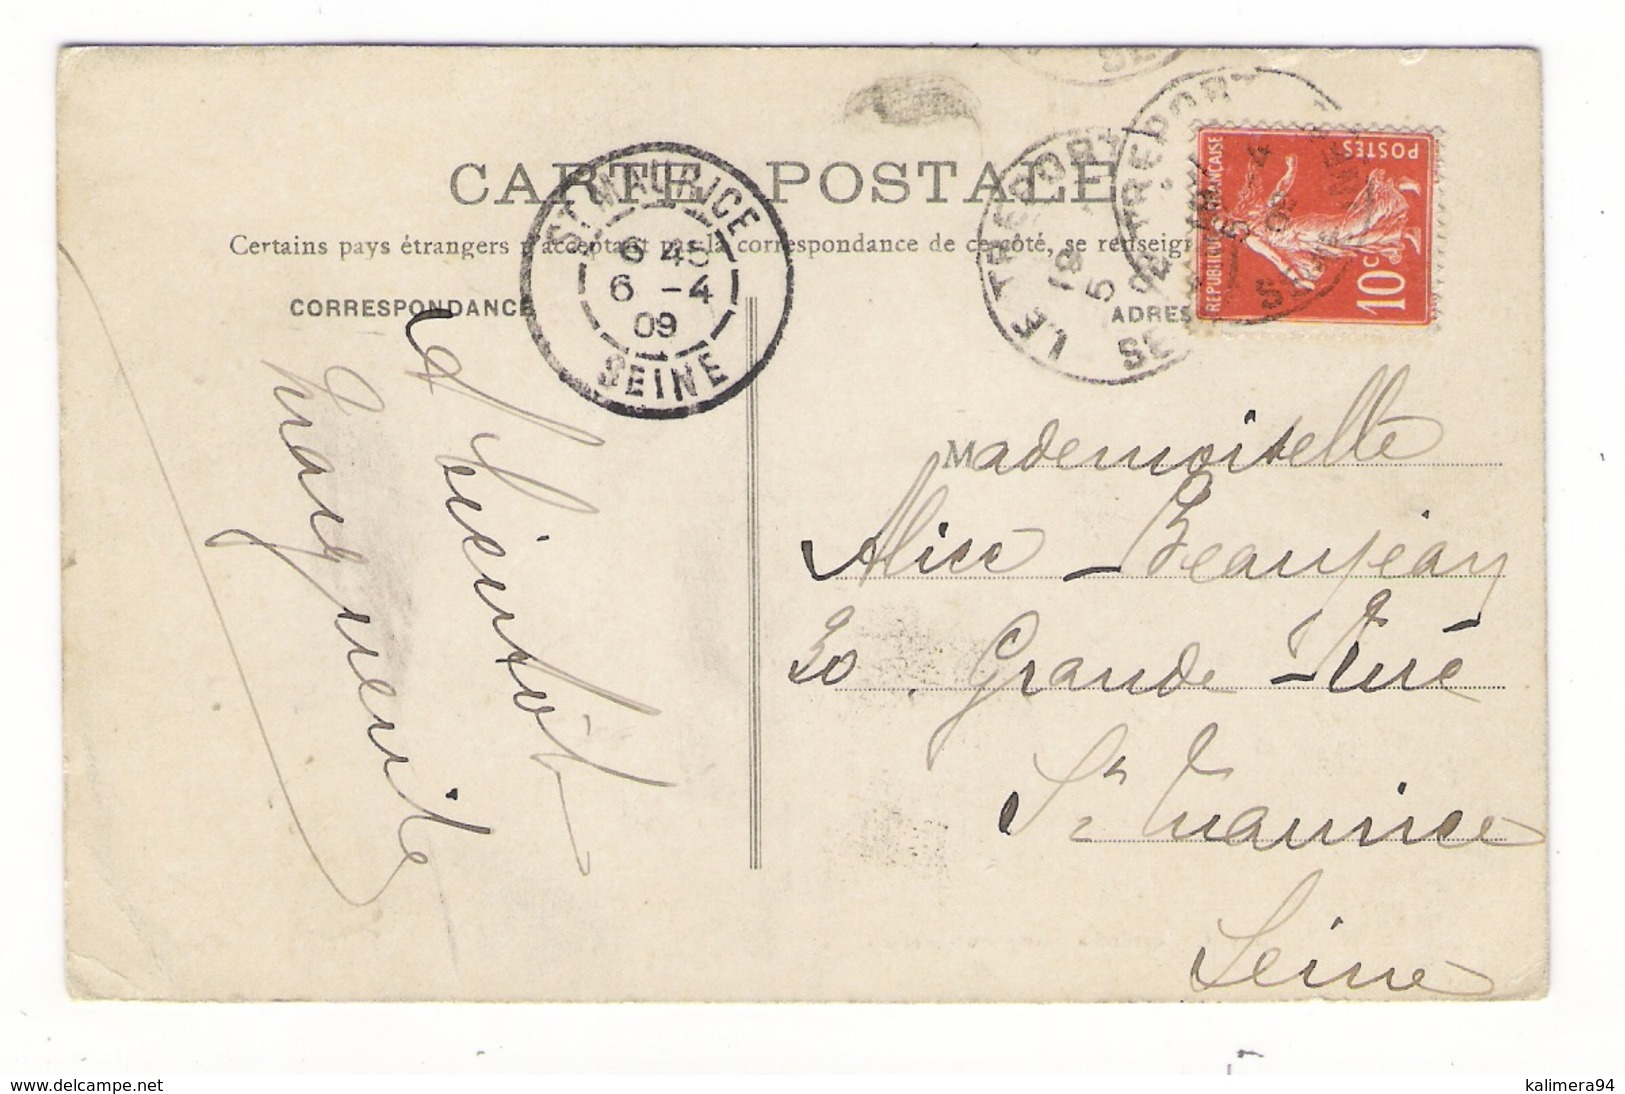 CARTE POSTALE
Certains pays étrangers n'acceptant pas la correspondance de ce côté, se renseign
CORRESPONDANCE
ADRES
ST MAURICE
6 45
6 -4
09
SEINE
LE TREPORT
LE TREPORT
SEINE
REPUBLIQUE FRANÇAISE
POSTES
10 C
A bientôt
Marguerite
Mademoiselle
Alice Beaujean
30, Grande Rue
St Maurice
Seine
www.delcampe.net
kalimera94